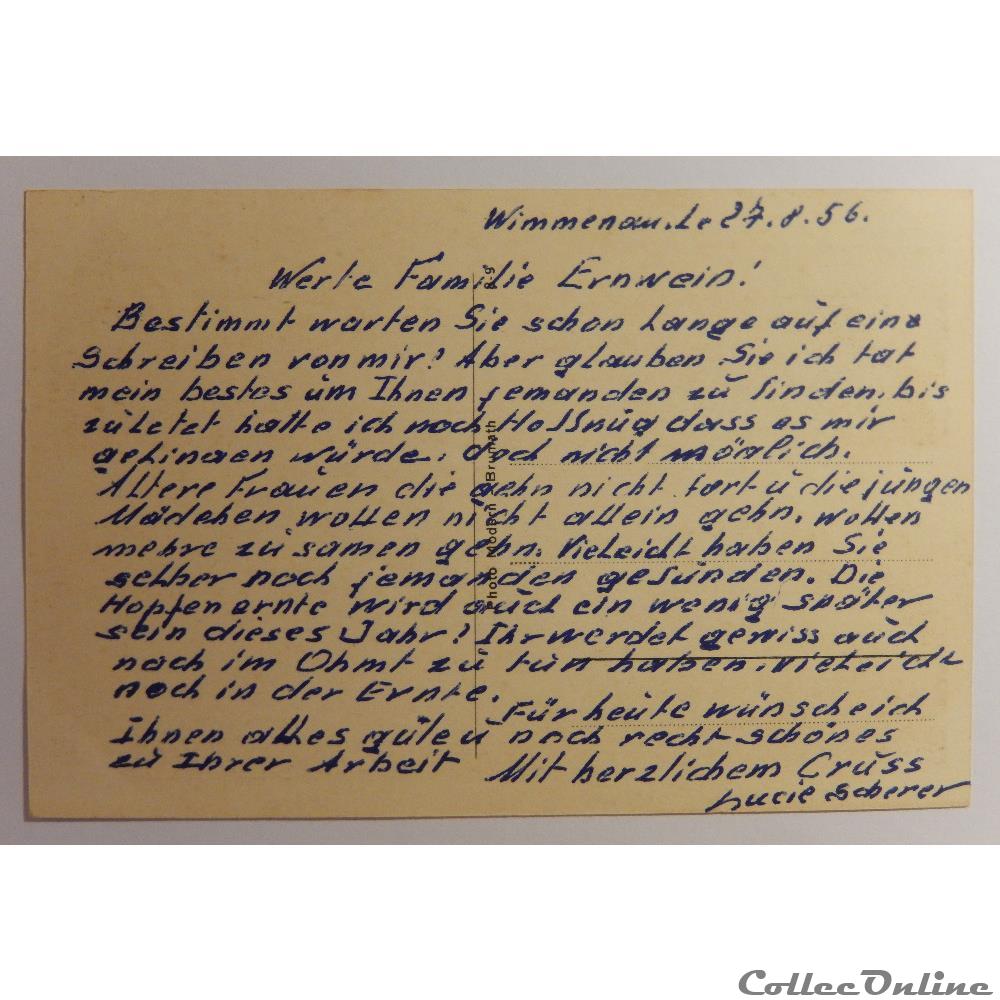 Wimmenau. Le 27.8.56.
Werte Familie Ernwein!
Bestimmt warten Sie schon lange auf eine
Schreiben von mir? Aber glauben Sie ich tat
mein bestes um Ihnen jemanden zu finden. bis
zuletzt hatte ich noch Hoffnug dass es mir
gelingen würde. doch nicht möglich.
Altere Frauen die gehn nicht fort u die jungen
Mädchen wollen nicht allein gehn. wollen
mehre zusamen gehn. Vieleicht haben Sie
selber noch jemanden gefunden. Die
Hopfenernte wird auch ein wenig später
sein dieses Jahr? Ihr werdet gewiss auch
noch im Ohmt zu tun haben. vieleicht
noch in der Ernte.
Für heute wünsche ich
Ihnen alles gute u noch recht schönes
zu Ihrer Arbeit
Mit herzlichem Gruss
Lucie Scherer
Photo Modern Brumath
CollecOnline